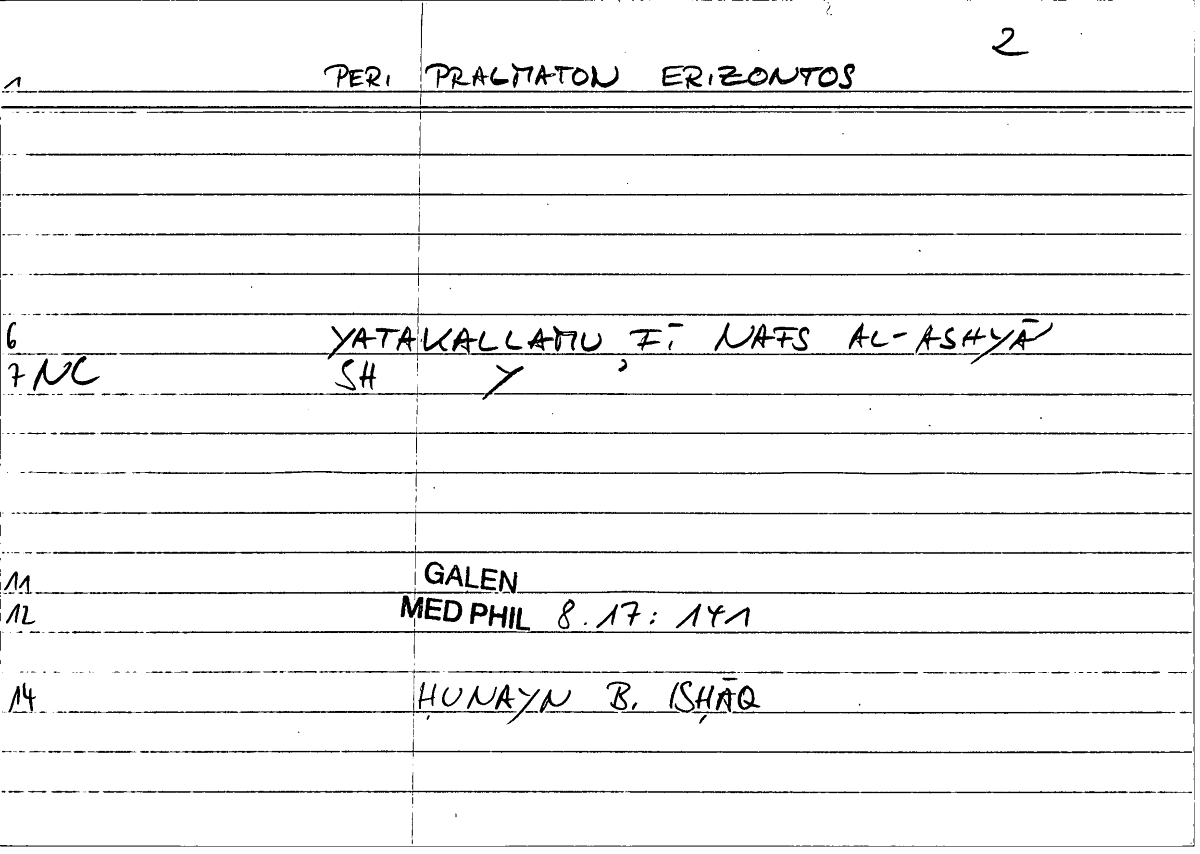 2
1 PERI PRAGMATON ERIZONTOS
6 YATAKALLAMU FĪ NAFS AL-ASHYĀʾ
7 NC SH Y ʾ
11 GALEN
12 MED PHIL 8.17: 141
14 ḤUNAYN B. ISḤĀQ